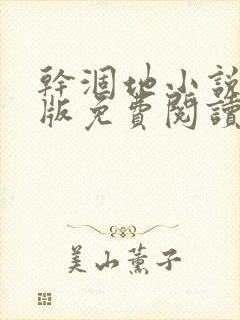 幹涸地小說
版免費閱讀
美山薰子